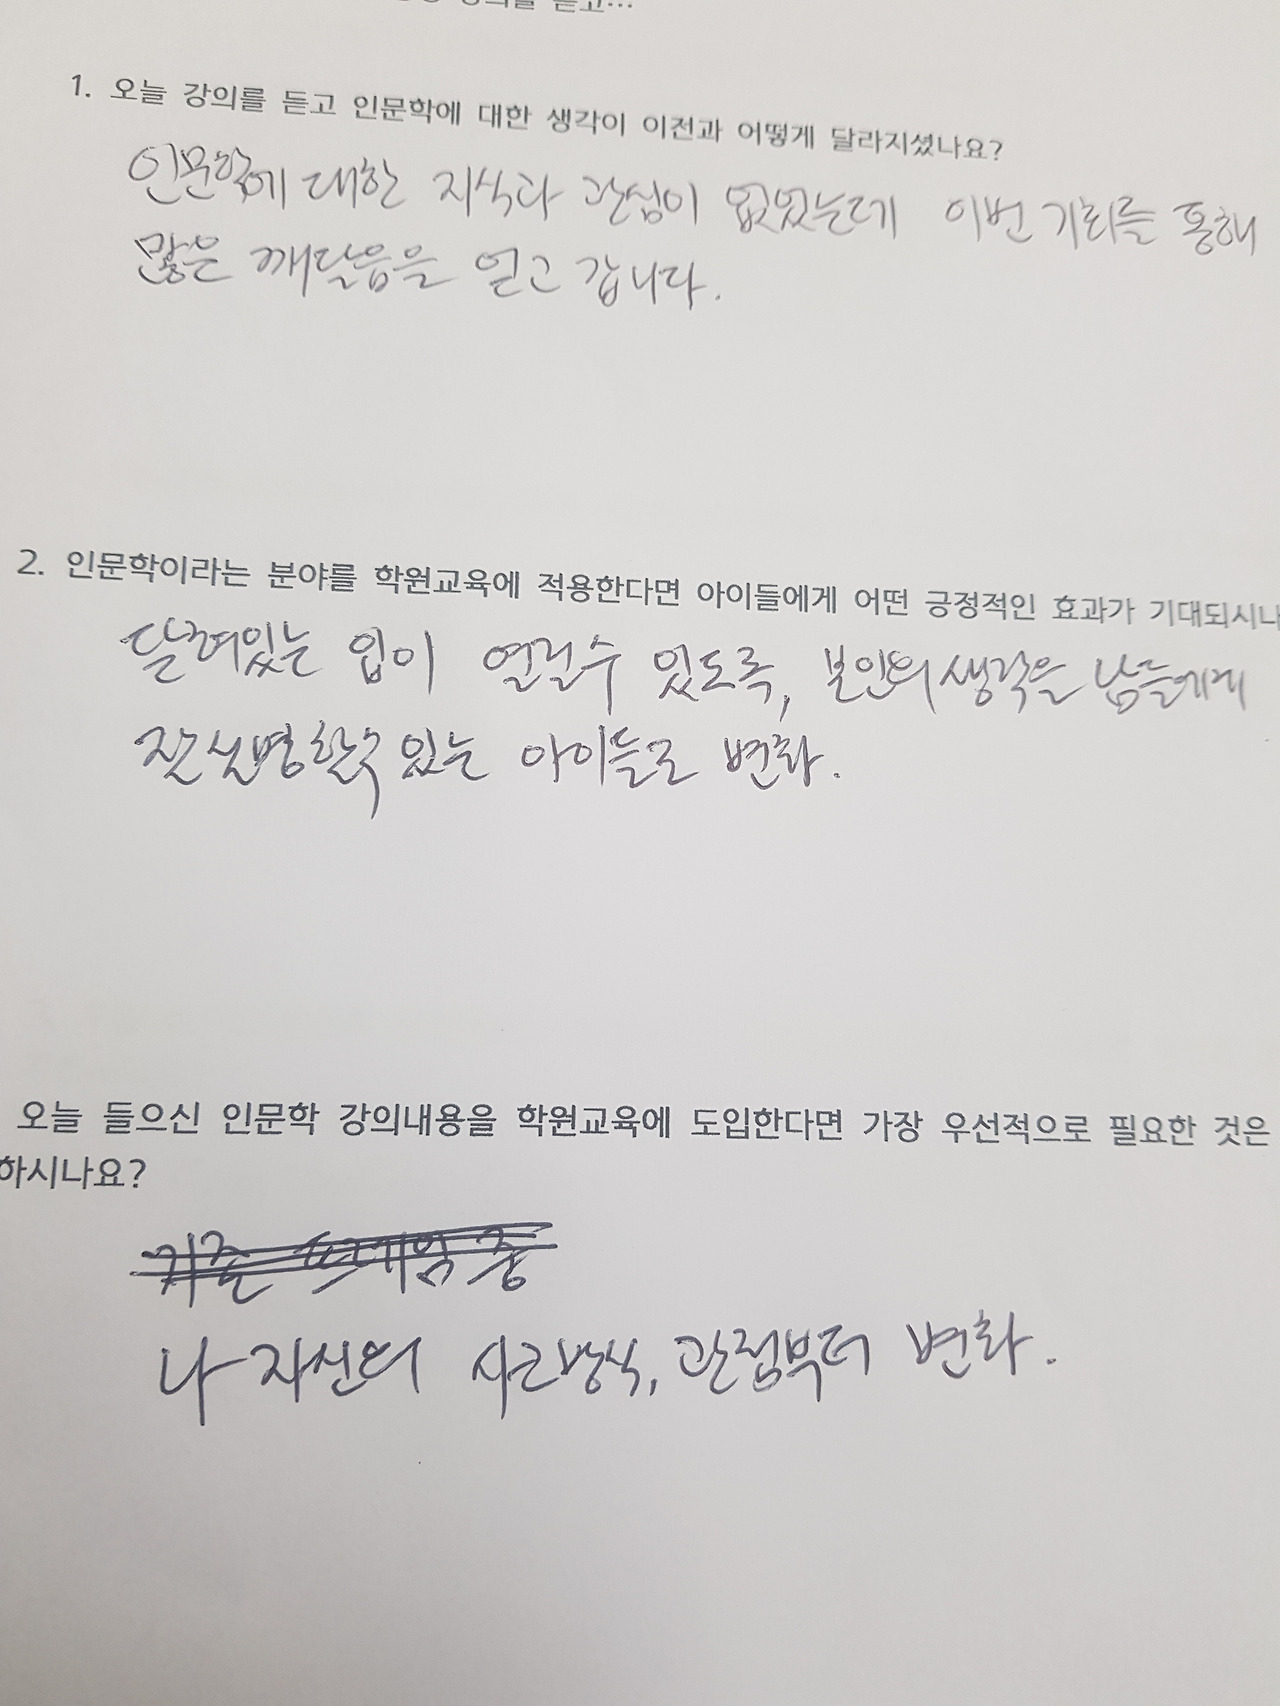 듣고...
1. 오늘 강의를 듣고 인문학에 대한 생각이 이전과 어떻게 달라지셨나요?
인문학에 대한 지식과 관심이 없었는데 이번 기회를 통해
많은 깨달음을 얻고 갑니다.
2. 인문학이라는 분야를 학원교육에 적용한다면 아이들에게 어떤 긍정적인 효과가 기대되시나
닫혀있는 입이 열릴수 있도록, 본인의 생각을 남들에게
잘 설명할수 있는 아이들로 변화.
오늘 들으신 인문학 강의내용을 학원교육에 도입한다면 가장 우선적으로 필요한 것은
하시나요?
나 자신의 사고방식, 관점부터 변화.